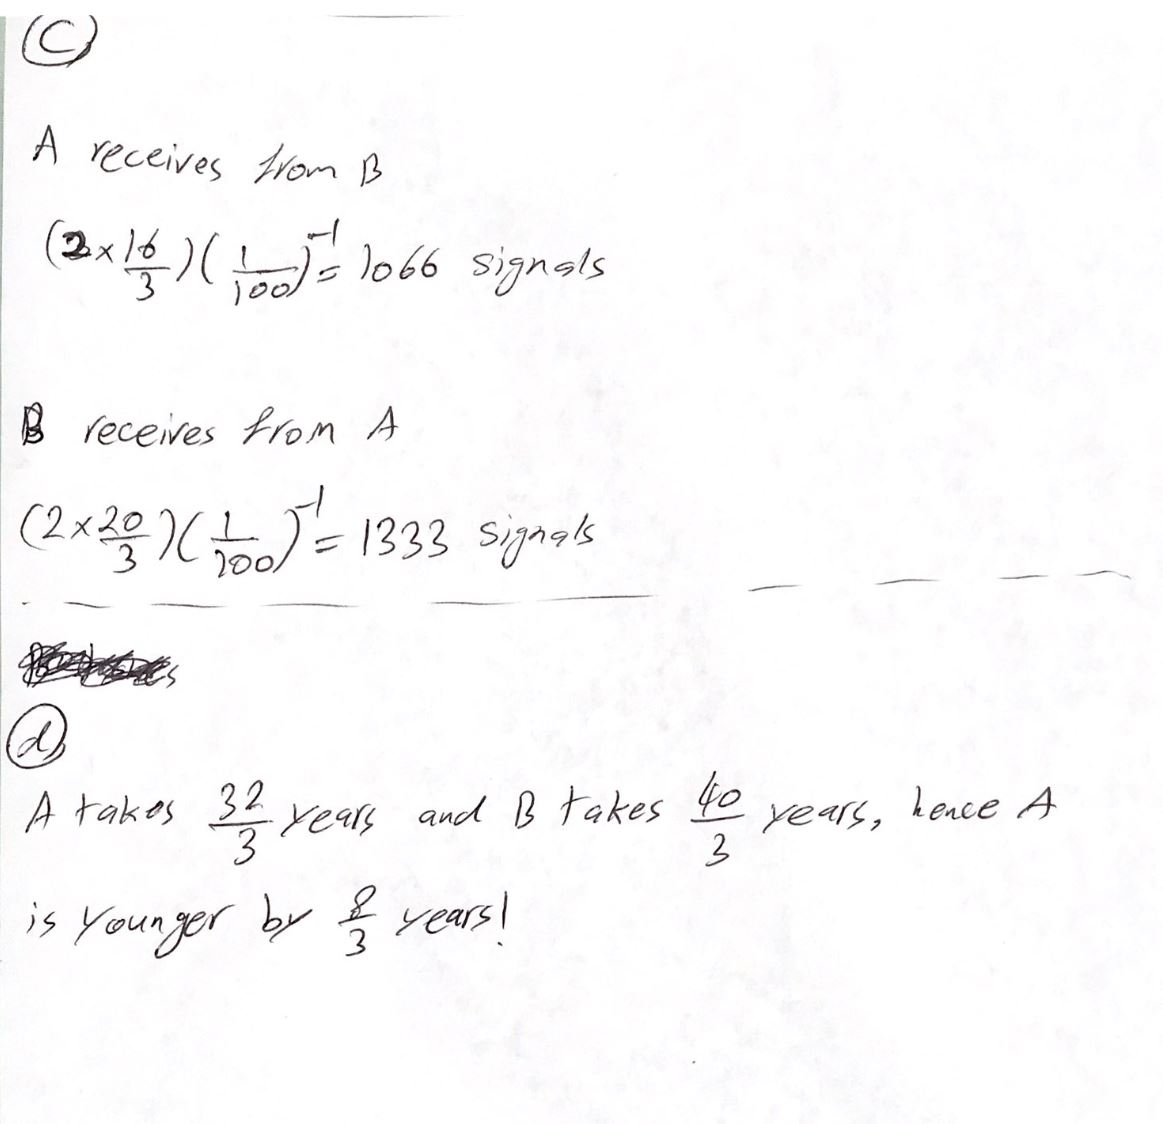 (C)
A receives from B
(2 × 16/3)(1/100)⁻¹ = 1066 signals
B receives from A
(2 × 20/3)(1/100)⁻¹ = 1333 signals
(d)
A takes 32/3 years and B takes 40/3 years, hence A
is younger by 8/3 years!